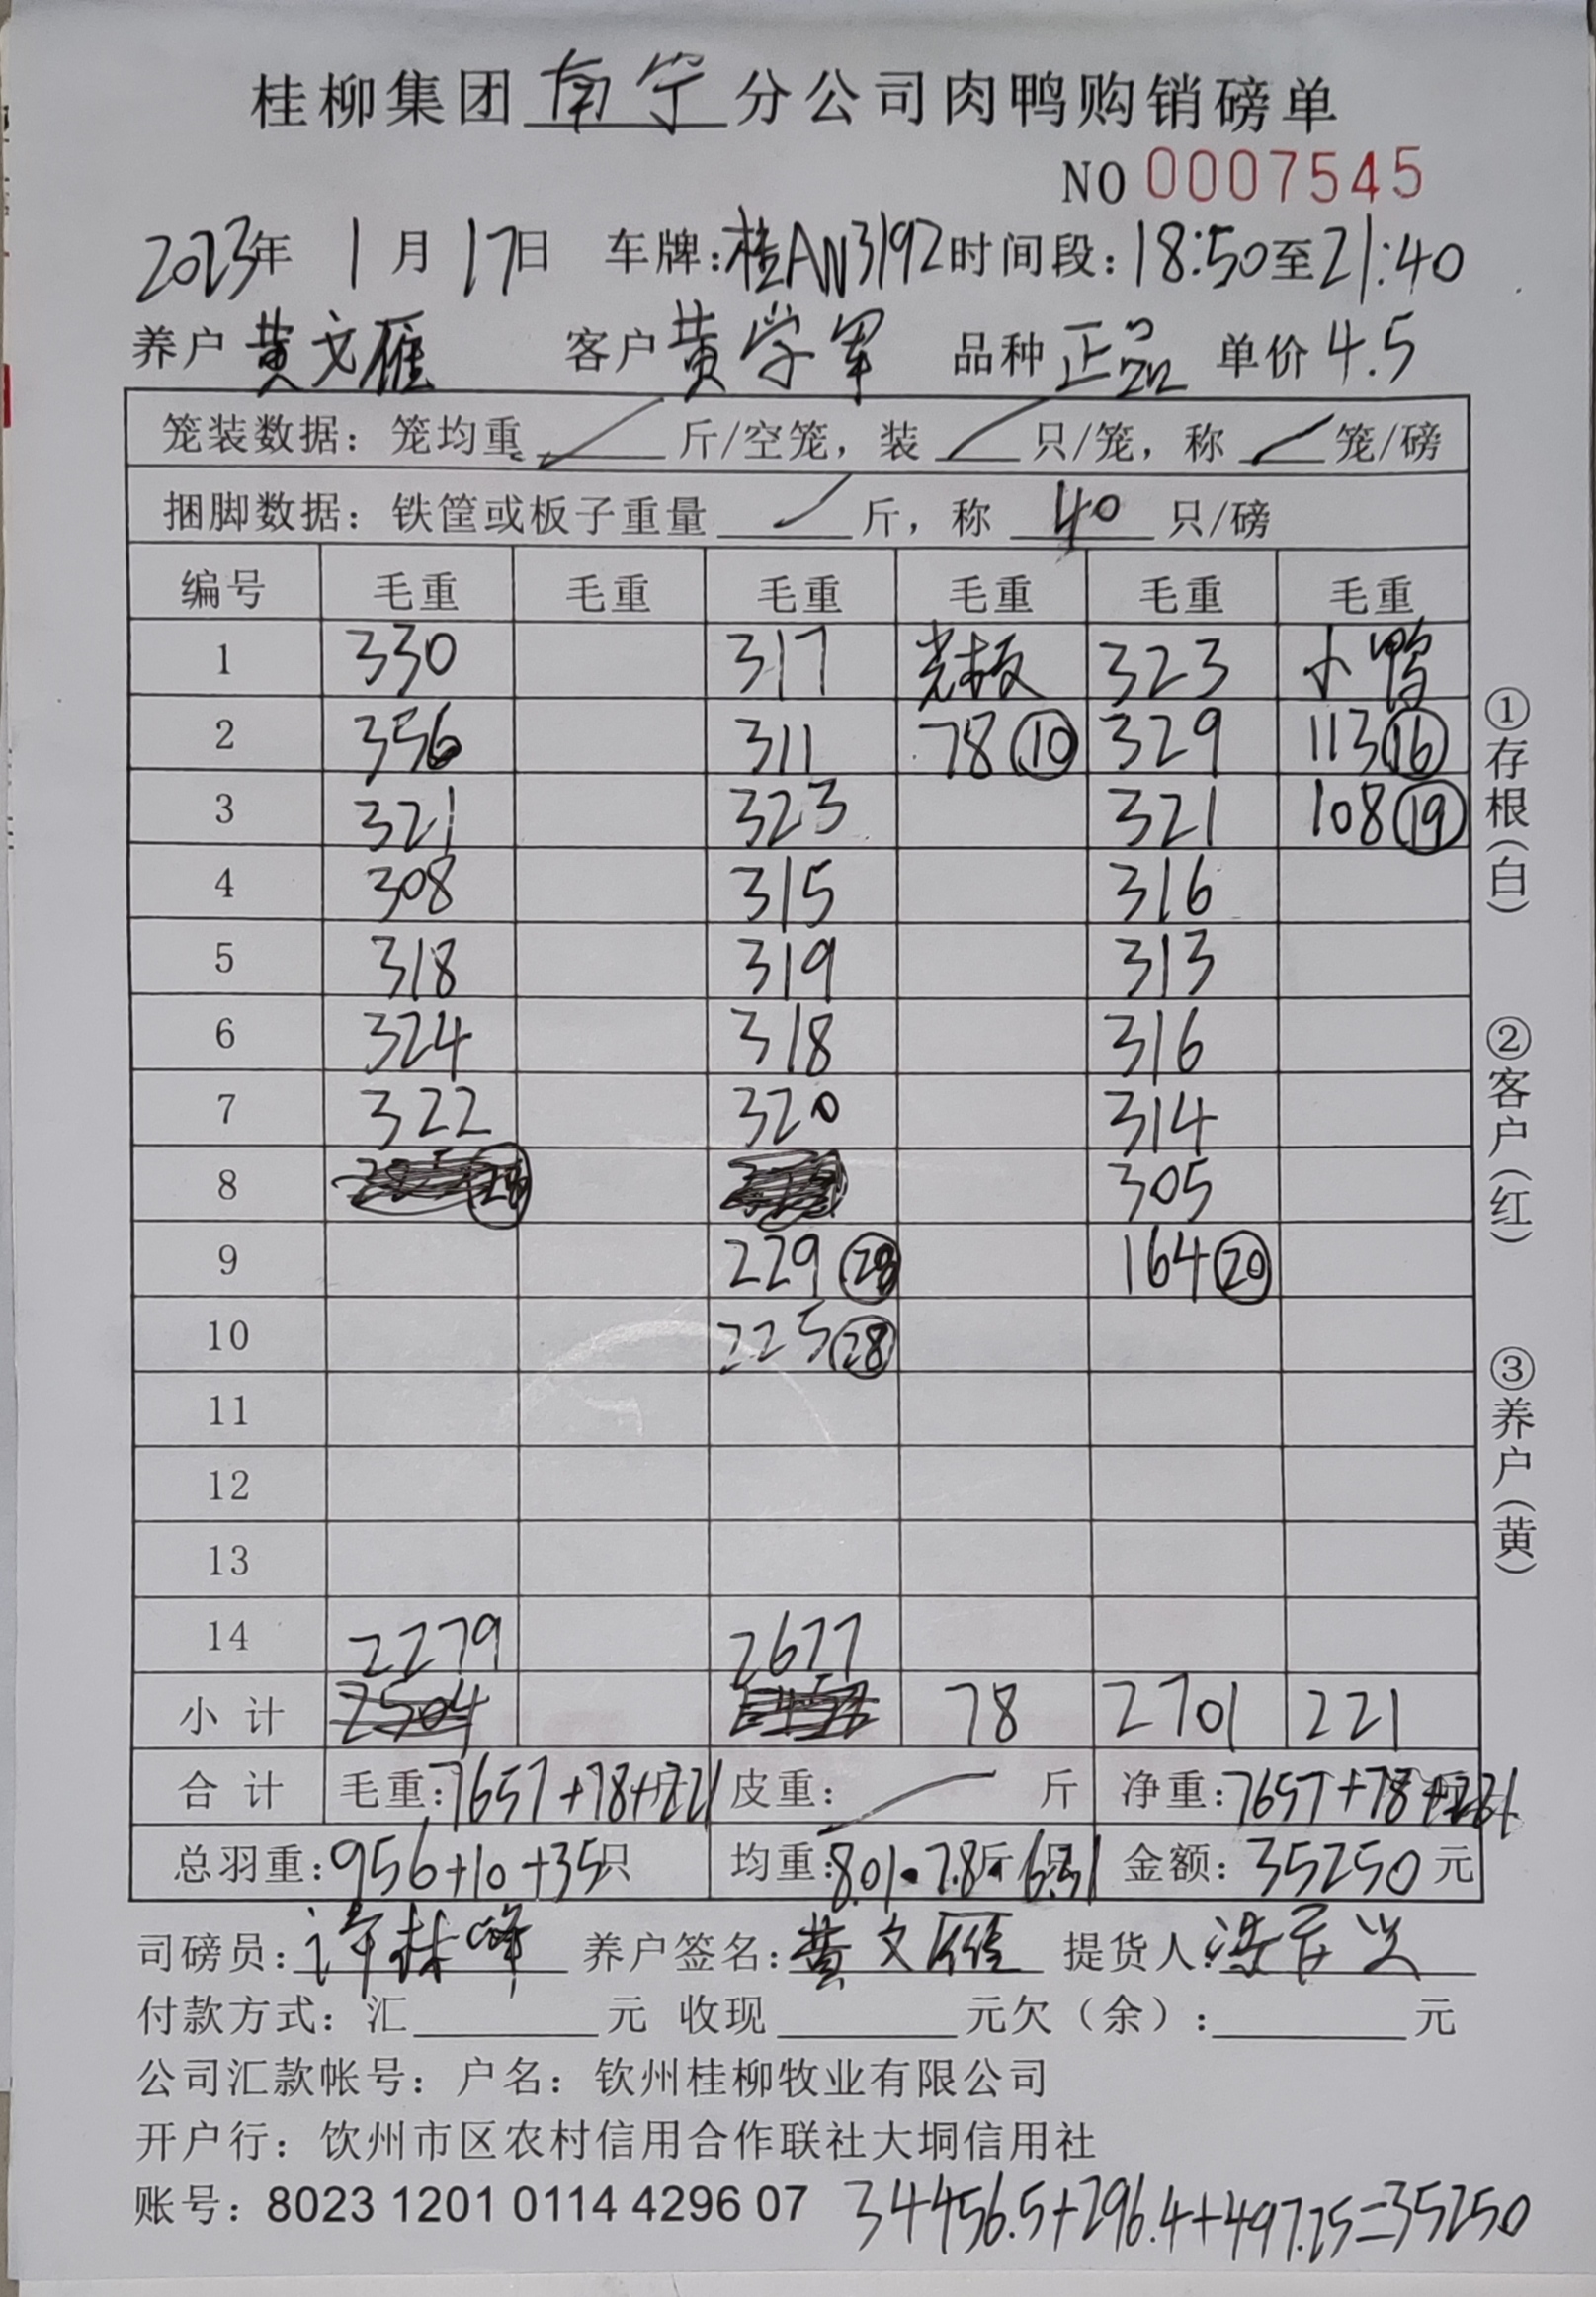 桂柳集团南宁分公司肉鸭购销磅单
NO 0007545
2023年 1月 17日 车牌:桂AN3192 时间段:18:50至21:40
养户 黄文雁 客户 黄学军 品种 正品 单价 4.5
笼装数据:笼均重 斤/空笼,装 只/笼,称 笼/磅
捆脚数据:铁筐或板子重量 斤,称 40 只/磅
编号 毛重 毛重 毛重 毛重 毛重 毛重
1 330 317 光板 323 小鸭
2 356 311 78 ⑩ 329 113 ⑯
3 321 323 321 108 ⑲
4 308 315 316
5 318 319 313
6 324 318 316
7 322 320 314
8 305
9 229 ㉘ 164 ⑳
10 225 ㉘
11
12
13
14 2279 2677
小计 2504 78 2701 221
合计 毛重:7657+78+221 皮重: 斤 净重:7657+78+221
总羽重:956+10+35只 均重:8.01·7.8斤 6.31 金额:35250元
司磅员:许林峰 养户签名:黄文雁 提货人:
付款方式:汇 元 收现 元欠(余): 元
公司汇款帐号:户名:钦州桂柳牧业有限公司
开户行:饮州市区农村信用合作联社大垌信用社
账号:8023 1201 0114 4296 07 34456.5+296.4+497.25=35250
①存根(白)
②客户(红)
③养户(黄)